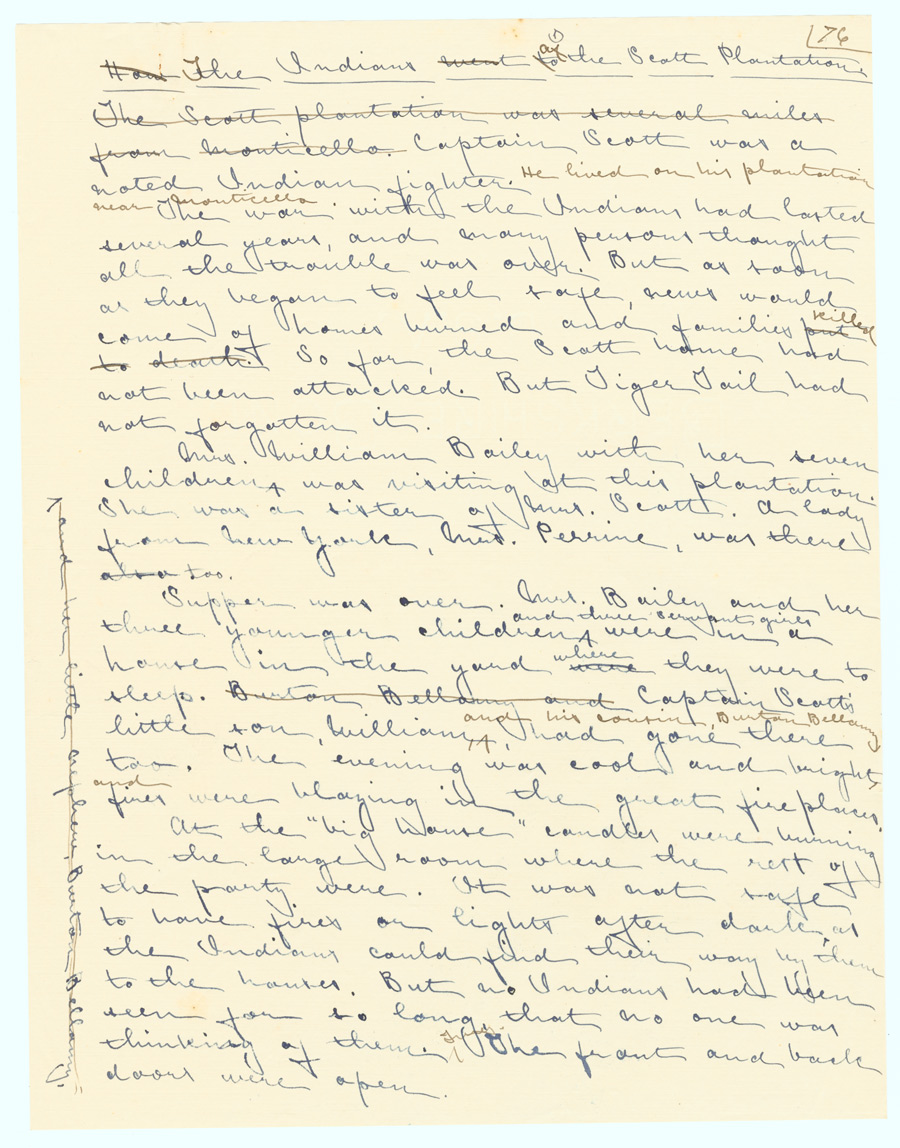 76
How The Indians went to at the Scott Plantation.
The Scott plantation was several miles
from Monticello. Captain Scott was a
noted Indian fighter. He lived on his plantation
near Monticello
The war with the Indians had lasted
several years, and many persons thought
all the trouble was over. But as soon
as they began to feel safe, news would
come of homes burned and families put killed
to death. So far, the Scott home had
not been attacked. But Tiger Tail had
not forgotten it.
Mrs. William Bailey with her seven
children, was visiting at this plantation.
She was a sister of Mrs. Scott. A lady
from New York, Mrs. Perrine, was there
also too.
Supper was over. Mrs. Bailey and her
three younger children and three servant girls were in a
house in the yard were where they were to
sleep. Burton Bellamy and Captain Scott's
little son, William and his cousin, Burton Bellamy, had gone there
too. The evening was cool and bright,
and fires were blazing in the great fireplaces.
At the "big house" candles were burning
in the large room where the rest of
the party were. It was not safe
to have fires or lights after dark, as
the Indians could find their way by them
to the houses. But no Indians had been
seen for so long that no one was
thinking of them. The front and back
doors were open.
and her little nephew, Burton Bellamy,